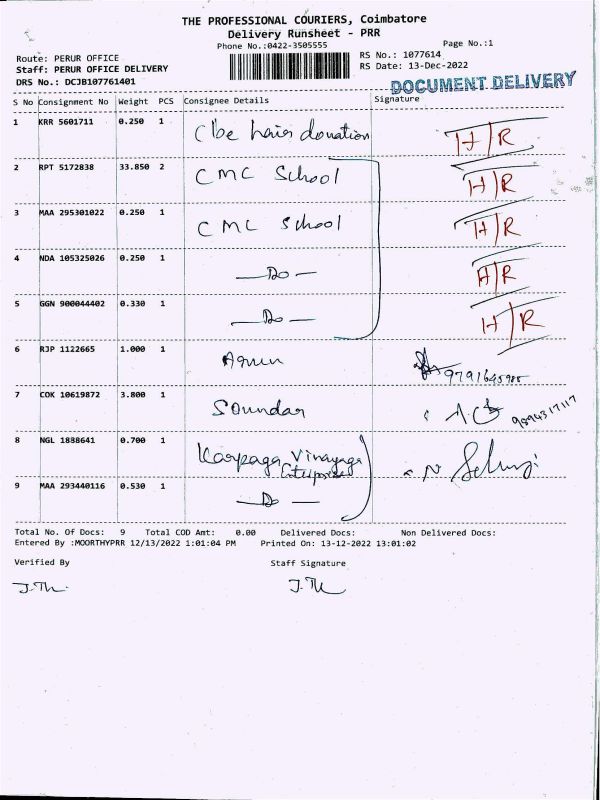 THE PROFESSIONAL COURIERS, Coimbatore
Delivery Runsheet - PRR
Phone No.:0422-3505555
Page No.:1
Route: PERUR OFFICE
RS No.: 1077614
Staff: PERUR OFFICE DELIVERY
RS Date: 13-Dec-2022
DRS No.: DCJB107761401
DOCUMENT DELIVERY
S No Consignment No Weight PCS Consignee Details Signature
1 KRR 5601711 0.250 1 Cbe hair donation H/R
2 RPT 5172838 33.850 2 CMC School H/R
3 MAA 295301022 0.250 1 CMC School H/R
4 NDA 105325026 0.250 1 — Do — H/R
5 GGN 900044402 0.330 1 — Do — H/R
6 RJP 1122665 1.000 1
7 COK 10619872 3.800 1 Soundar 9894317117
8 NGL 1888641 0.700 1 Karpaga Vinayaga
Enterprises
9 MAA 293440116 0.530 1 — Do —
Total No. Of Docs: 9 Total COD Amt: 0.00 Delivered Docs: Non Delivered Docs:
Entered By :MOORTHYPRR 12/13/2022 1:01:04 PM Printed On: 13-12-2022 13:01:02
Verified By Staff Signature